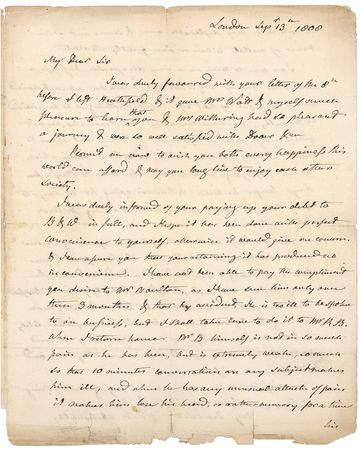 London Sepr 13th 1808
My Dear Sir
I was duly favoured with your letter of the 8th
before I left Heathfield & it gave Mrs Watt & myself much
pleasure to learn that you & Mrs Withering had so pleasant
a journey & were so well satisfied with
Permit me now to wish you both every happiness this
world can afford & may you long live to enjoy each others
Society.
I was duly informed of your paying up your debt to
B & W. in full, and I hope it has been done with perfect
convenience to yourself, otherwise it would give me concern,
& I can assure you that your retaining it has produced no
inconvenience. I have not been able to pay the compliment
you desire to Mr Boulton, as I have seen him only once
these 3 months, & that by accident. He is too ill to be spoken
to on business, but I shall take care to do it to Mr R. B.
when I return home. Mr B himself is not in so much
pain as he has been, and is extremely weak, so much
so that 10 minutes conversation on any subject makes
him ill, and when he has any unusual attack of pain
it makes him lose his head, or rather memory for a time
his